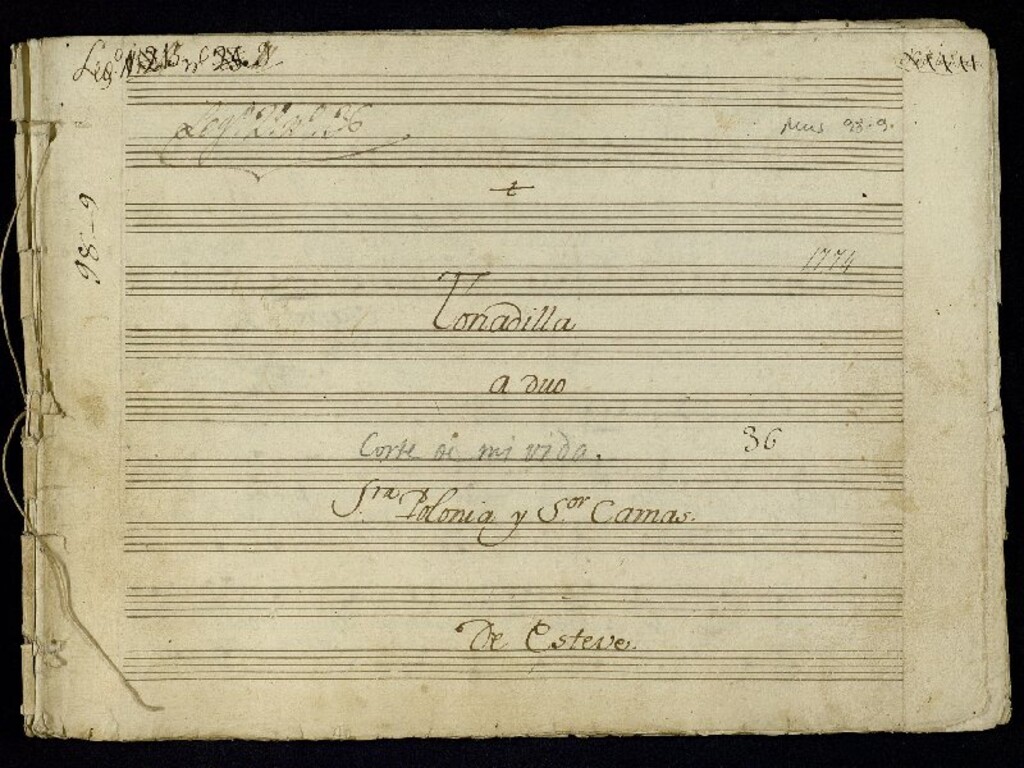 Leg.º
Leg.º 2.º n.º 36
Mus 98-9.
98-9
1774
Tonadilla
a duo
Corte de mi vida.
36
S.ra Polonia y S.or Camas.
De Esteve.